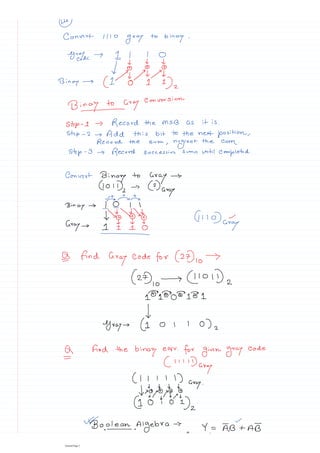 Convert 1110 gray to binary.
Gray code → 1 1 1 0
Binary → (1 0 1 1)2
Binary to Gray Conversion.
Step-1 → Record the MSB as it is.
Step-2 → Add this bit to the next position,
Record the sum, neglect the carry
Step-3 → Record successive sums until completed
Convert Binary to Gray →
(1011)2 → (?)Gray
Binary → 1 0 1 1
Gray → 1 1 1 0 (1110)Gray
Q Find Gray code for (27)10 →
(27)10 → (11011)2
1⊕1⊕0⊕1⊕1
Gray → (1 0 1 1 0)2
Q. Find the binary eqv. for given gray code
(11111)Gray
(1 1 1 1 1)Gray
(1 0 1 0 1)2
Boolean Algebra → Y = A̅B + AB̅